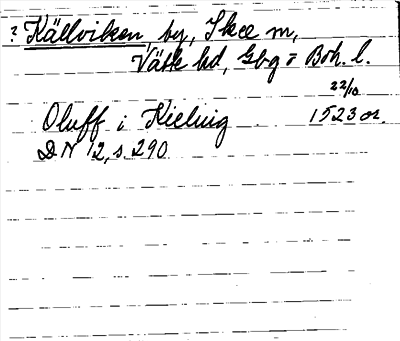 ? Källviken, by, Skee sn,
Vätte hd, Gbg o Boh. l.
22/10
Oluff i Kieluig 1523 or.
DN 12, s. 290